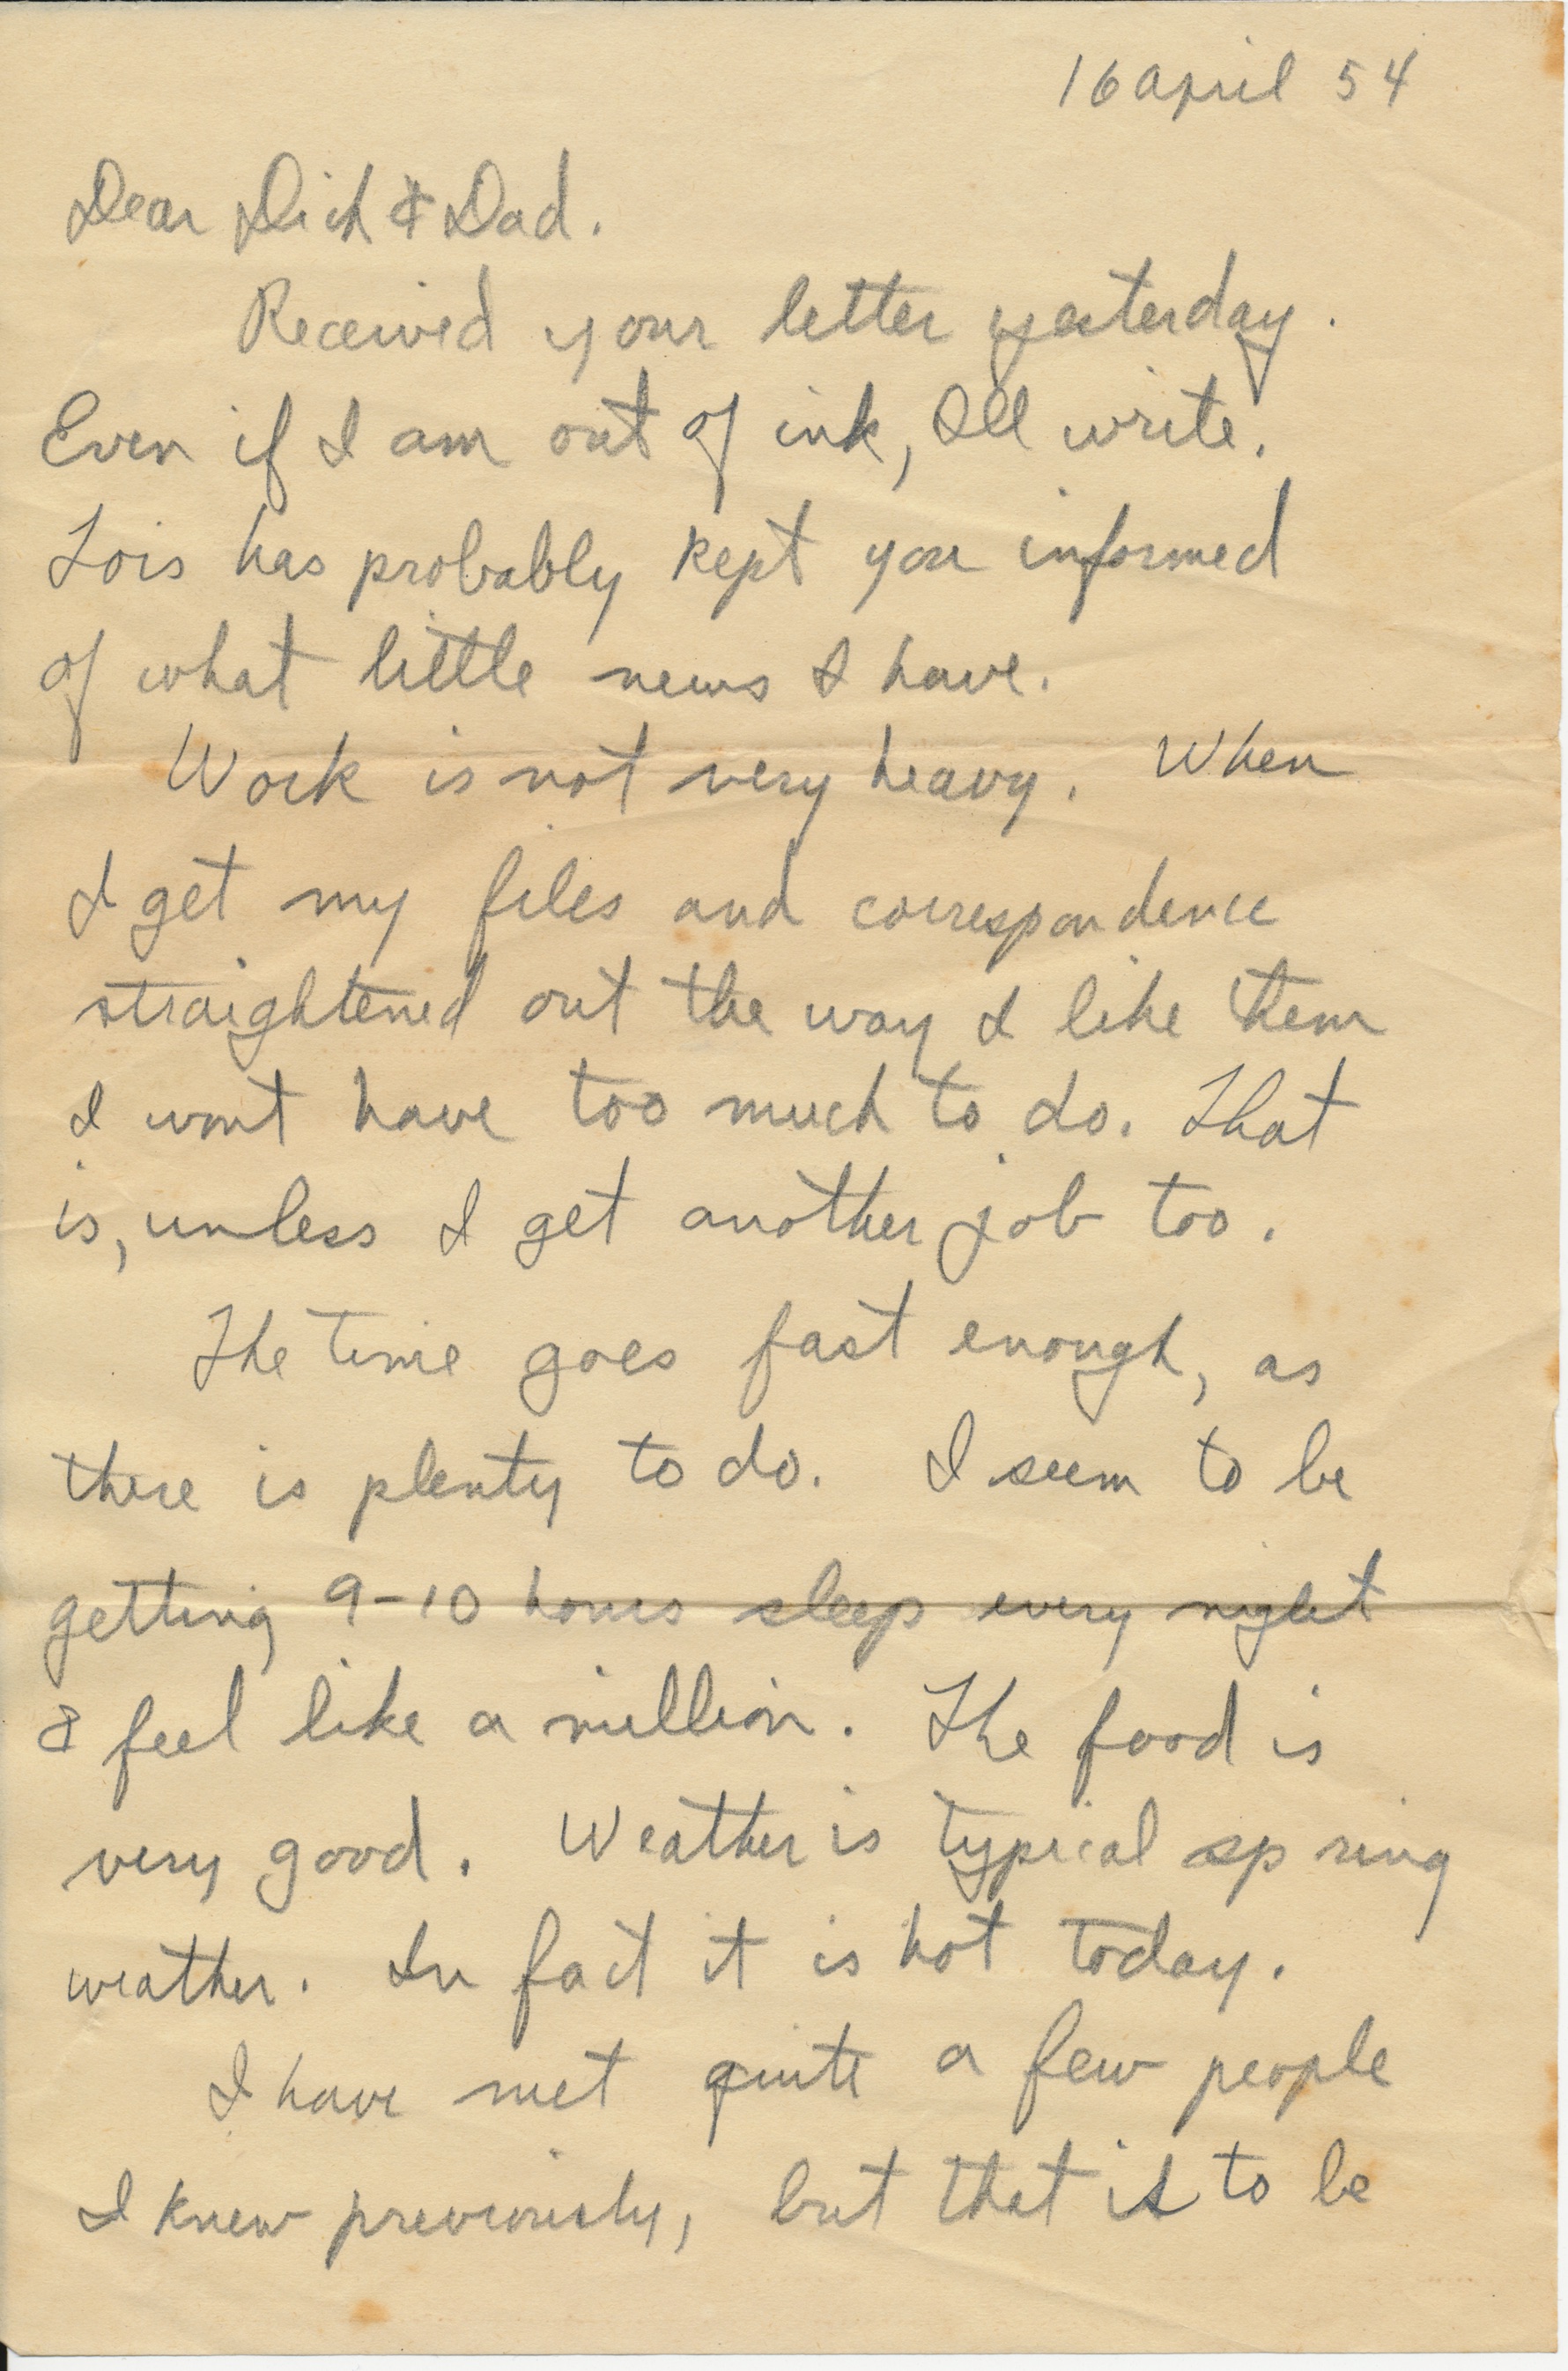 16 April 54
Dear Dick & Dad.
Received your letter yesterday.
Even if I am out of ink, I'll write.
Lois has probably kept you informed
of what little news I have.
Work is not very heavy. When
I get my files and correspondence
straightened out the way I like them
I wont have too much to do. That
is, unless I get another job too.
The time goes fast enough, as
there is plenty to do. I seem to be
getting 9-10 hours sleep every night
& feel like a million. The food is
very good. Weather is typical spring
weather. In fact it is hot today.
I have met quite a few people
I knew previously, but that is to be